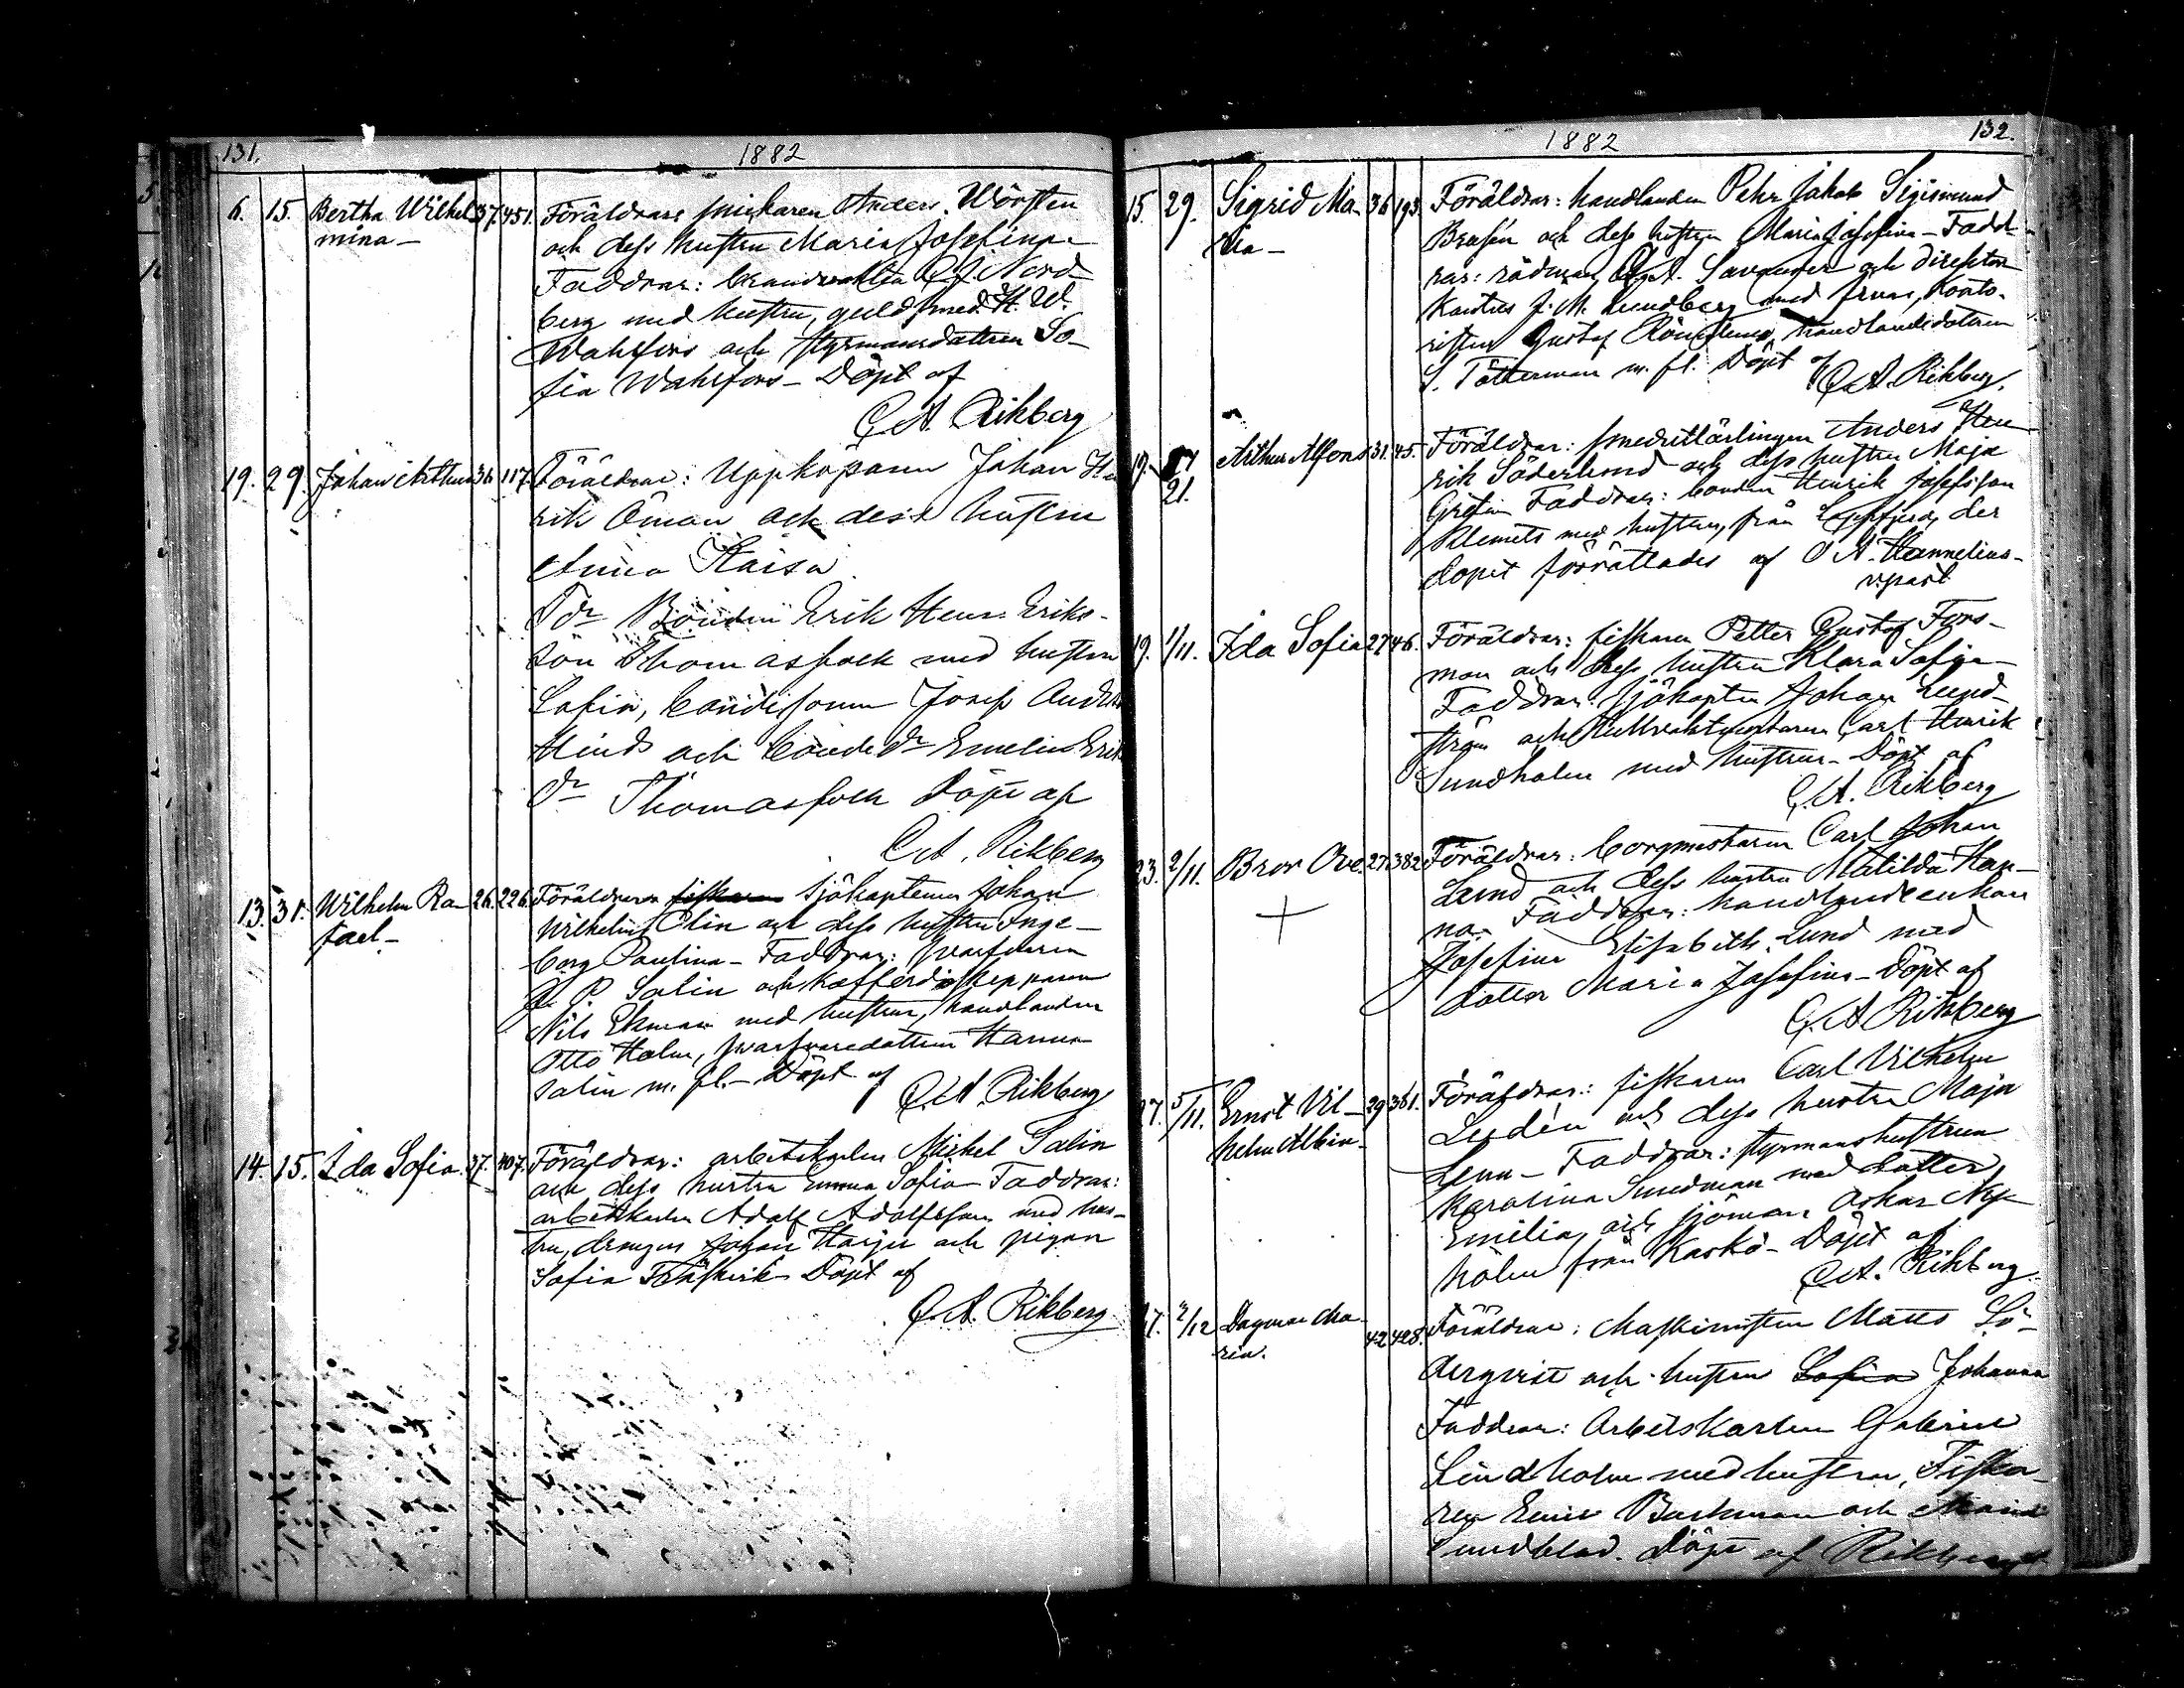 131.
1882
6. 15. Bertha Wilhel- 37. 451. Föräldrar: snickaren Anders Wörsten
mina - och dess hustru Maria Josefina -
Faddrar: brandvakten Nord-
berg med hustru, guldsmed. H. W.
Wahlfors och styrmansdottren So-
fia Wahlfors - Döpt af
C. A. Rikberg
19. 29. Johan Arthur 36 117. Föräldrar: Uppköparen Johan Hen
rik Öman och dess hustru
Anna Kaisa.
Fdr Bonden Erik Henr. Eriks-
son Thomasfolk med hustru
Sofia, bondesonen Josef Anders
Hinds och bonded:r Emelie Erik
d:r Thomasfolk Döpt af
C. A. Rikberg
13. 31. Wilhelm Ra- 26. 226. Föräldrar: sjökaptenen Johan
fael - Wilhelm Elin och dess hustru Inge-
borg Paulina - Faddrar: svarfvaren
P. Salin och kofferdiskepparen
Nils Ekman med hustrur, handlanden
Otto Holm, svarfvaredottren Hanna
Salin m. fl. - Döpt af
C. A. Rikberg
14. 15. Ida Sofia. 37. 407. Föräldrar: arbetskarlen Mickel Salin
och dess hustru Emma Sofia - Faddrar:
arbetskarlen Adolf Adolfsson med hus-
tru, drengen Johan Harju och pigan
Sofia Döpt af
C. A. Rikberg
1882
132.
15. 29. Sigrid Ma- 36 193. Föräldrar: handlanden Pehr Jakob Sigismund
ria - Brasén och dess hustru Maria Josefina - Fadd-
rar: rådman A. Savander och direktor
J. M. Lundberg med fruar, konto-
risten Gustaf handlandedottren
S. Tötterman m. fl. Döpt af
C. A. Rikberg.
19. 21. Arthur Alfons 31. 45. Föräldrar: smedslärlingen Anders Hen
rik Söderlund och dess hustru Maja
Greta Faddrar: bonden Henrik Josefsson
Klemets med hustru, från Lappfjerd, der
dopet förrättades af O A. Hannelius -
v. past
19. 1/11. Ida Sofia 27 46. Föräldrar: fiskaren Petter Gustaf Fors-
man och dess hustru Klara Sofia -
Faddrar: sjökapten Johan Lund-
ström och tullvaktmästaren Carl Henrik
Sundholm med hustrur - Döpt af
C. A. Rikberg
23. 2/11. Bror Ove. 27. 382 Föräldrar: borgmestaren Carl Johan
+ Lund och dess hustru Matilda Han-
na - Faddrar: handlandeenkan
Josefina Elisabeth Lund med
dotter Maria Josefina - Döpt af
C. A. Rikberg
27. 5/11. Ernst Vil- 29 361. Föräldrar: fiskaren Carl Vilhelm
helm Albin - Lydén och dess hustru Maja
Lena - Faddrar: styrmanshustrun
Karolina Smedman med dotter
Emilia, och sjöman Oskar Ny-
holm från Kaskö - Döpt af
C. A. Rikberg.
27. 3/12 Dagmar Ma- 42 428. Föräldrar: Maskinisten Matts Sö-
ria. derqvist och hustru Sofia Johanna
Faddrar: Arbetskarlen Gabriel
Lindholm med hustru, Fiska-
ren Emil Backman och Maria
Sundblad. Döpt af Rikberg